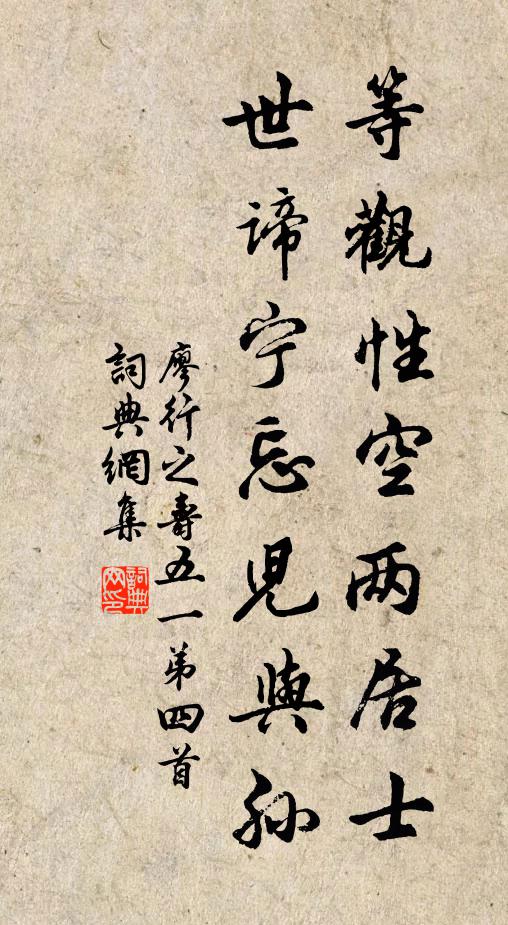 等觀性空两居士
世諦宁忘児與孙
廖行之壽五一第四首
詞典網集
詞典網印